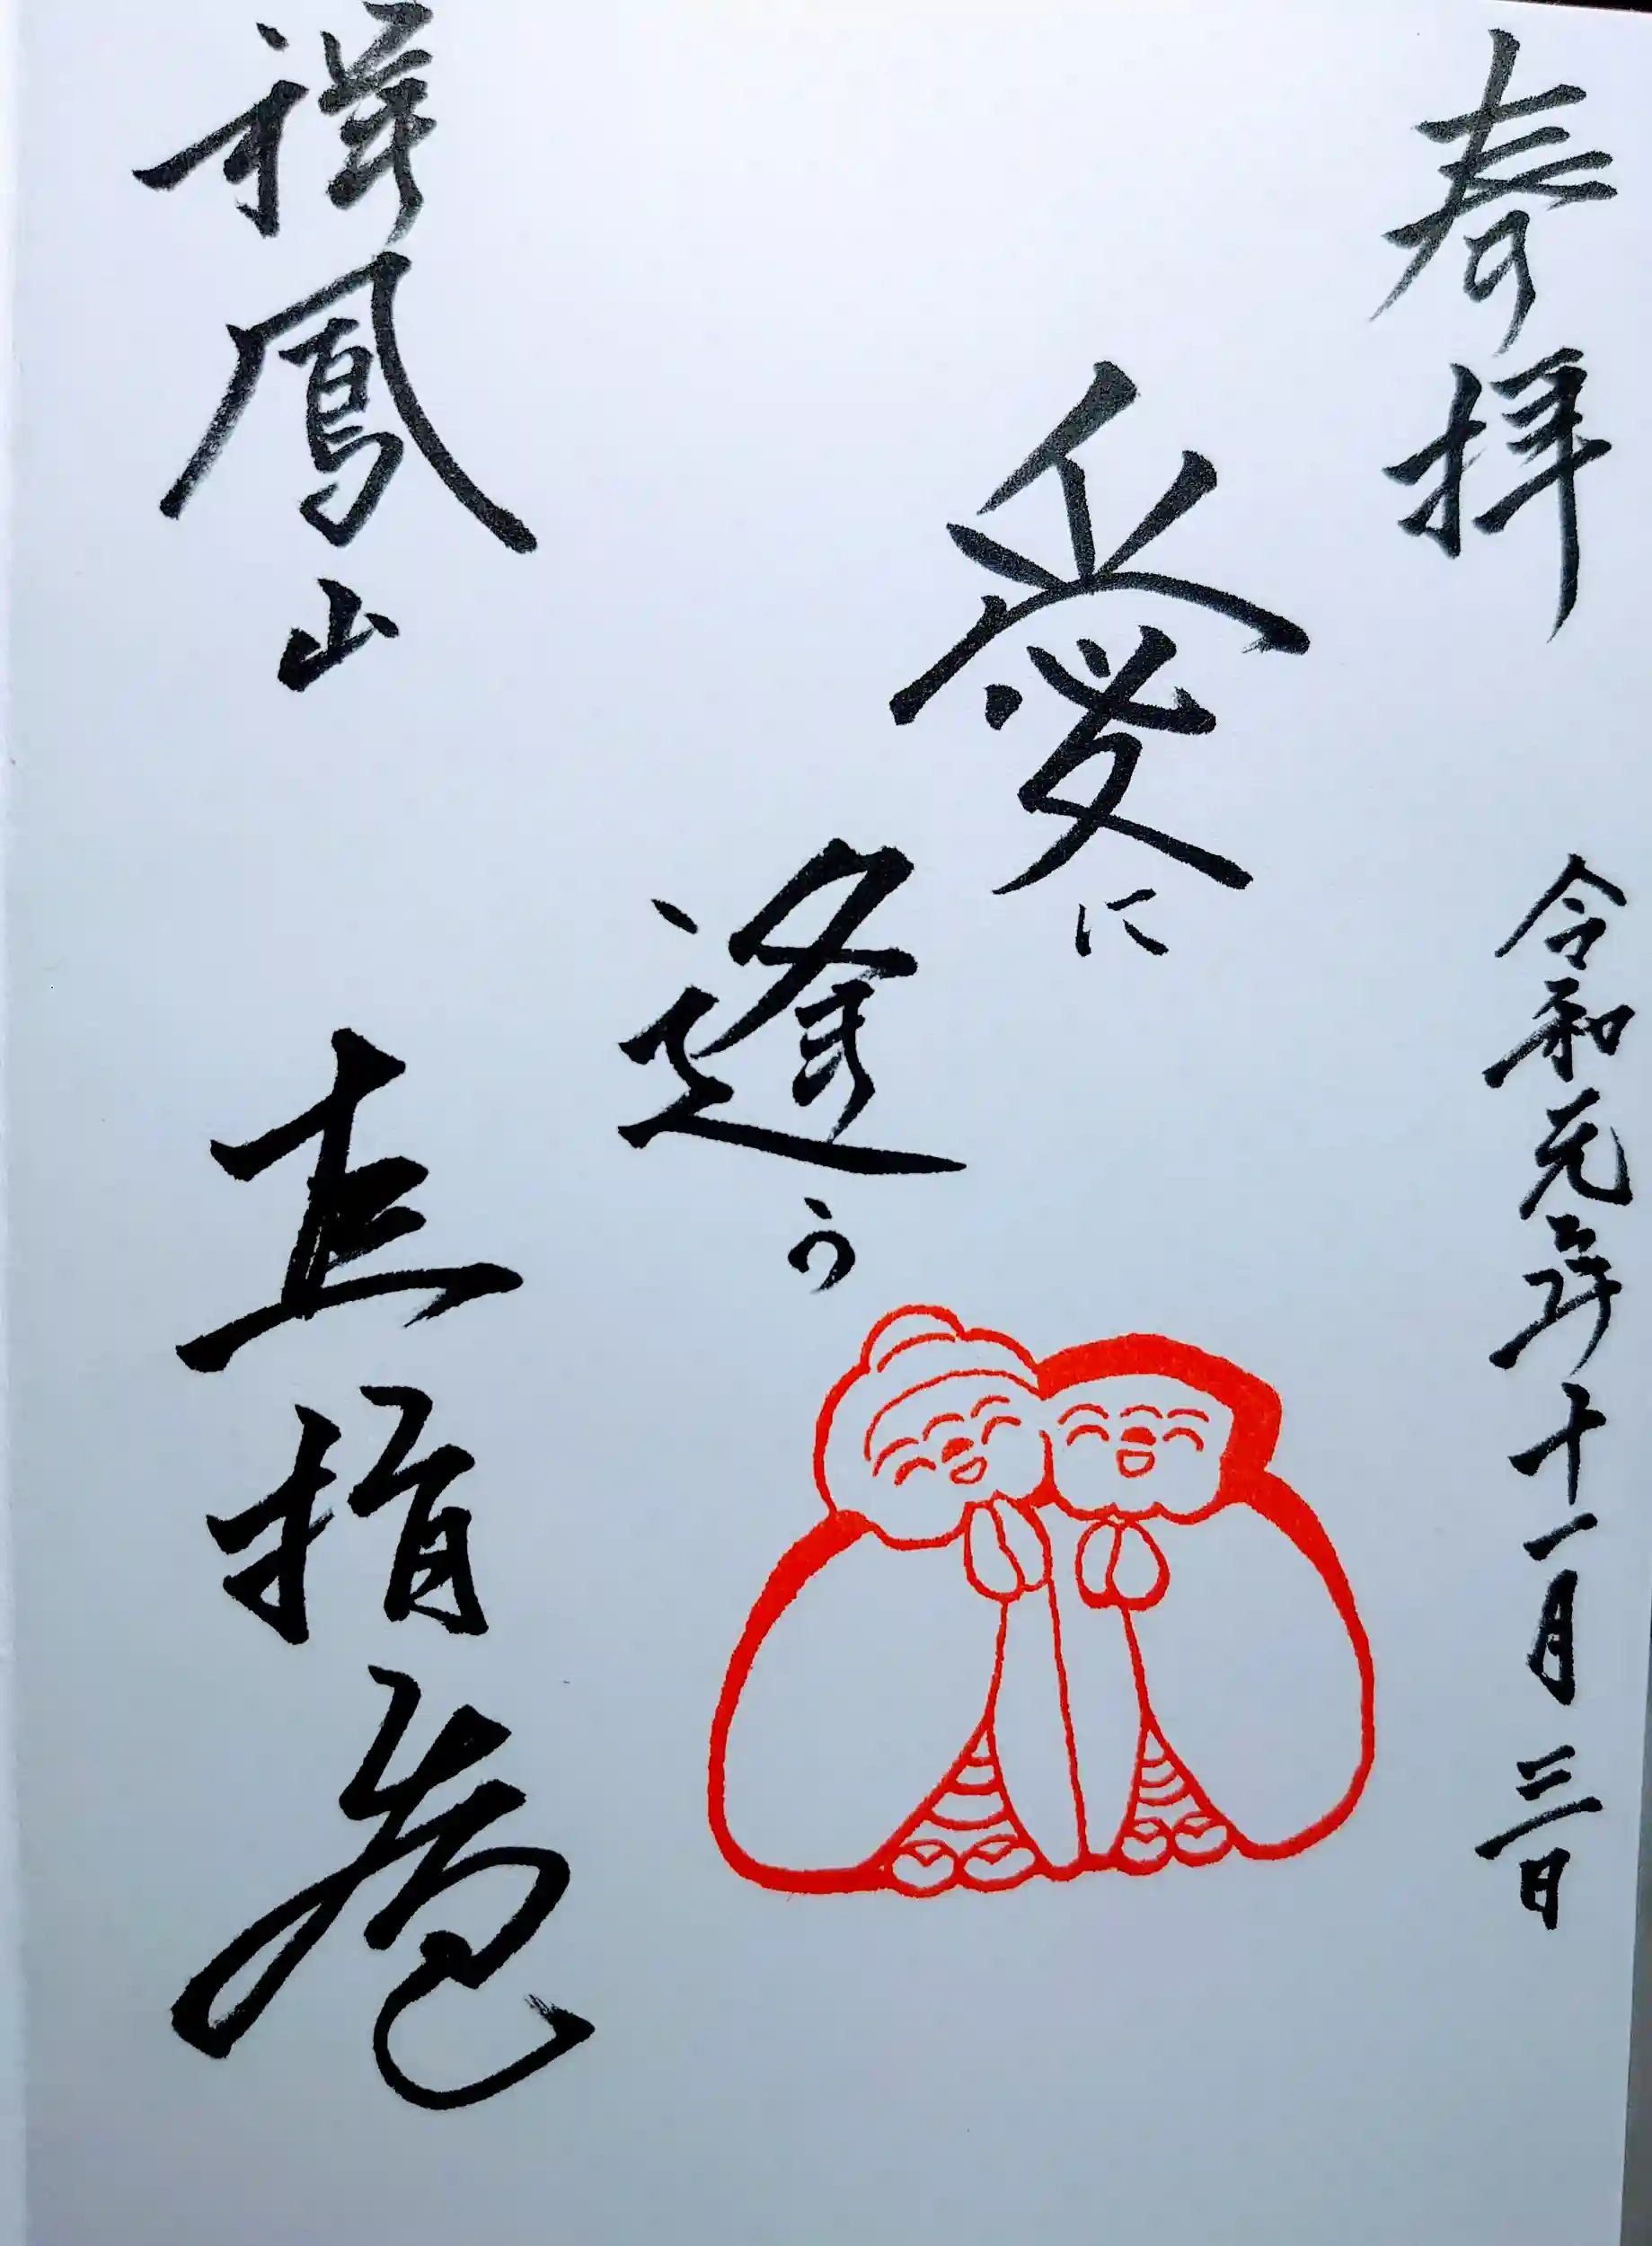 奉拝 令和元年十一月三日
愛に
逢う
祥鳳山 直指庵